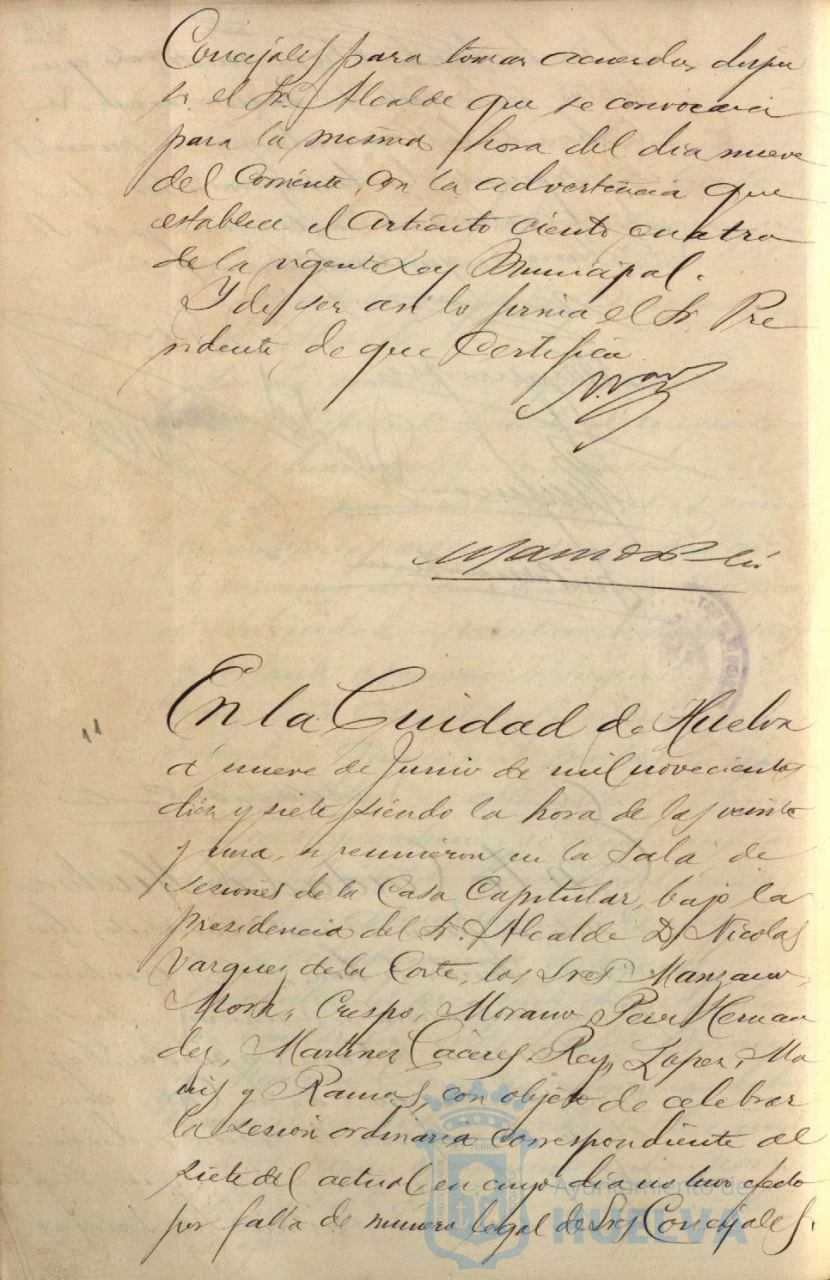 Concejales para tomar acuerdos, dispu
so el Sr. Alcalde que se convocara
para la misma hora del dia nueve
del corriente, con la advertencia que
establece el articulo ciento cuatro
de la vigente Ley Municipal.
Y de ser asi lo firma el Sr. Pre
sidente, de que certifico
En la Ciudad de Huelva
á nueve de Junio de mil novecientos
diez y siete siendo la hora de las veinte
y una, se reunieron en la Sala de
sesiones de la Casa Capitular, bajo la
presidencia del Sr. Alcalde D. Nicolas
Vazquez de la Corte, los Sres Manzano,
Mora, Crespo, Morano, Hernan
dez, Martinez Cáceres, Rey, Lopez, Mo
y Ramos, con objeto de celebrar
la sesión ordinaria correspondiente al
siete del actual, en cuyo dia no tuvo efecto
por falta de número legal de Sres Concejales.
Ayuntamiento de
HUELVA